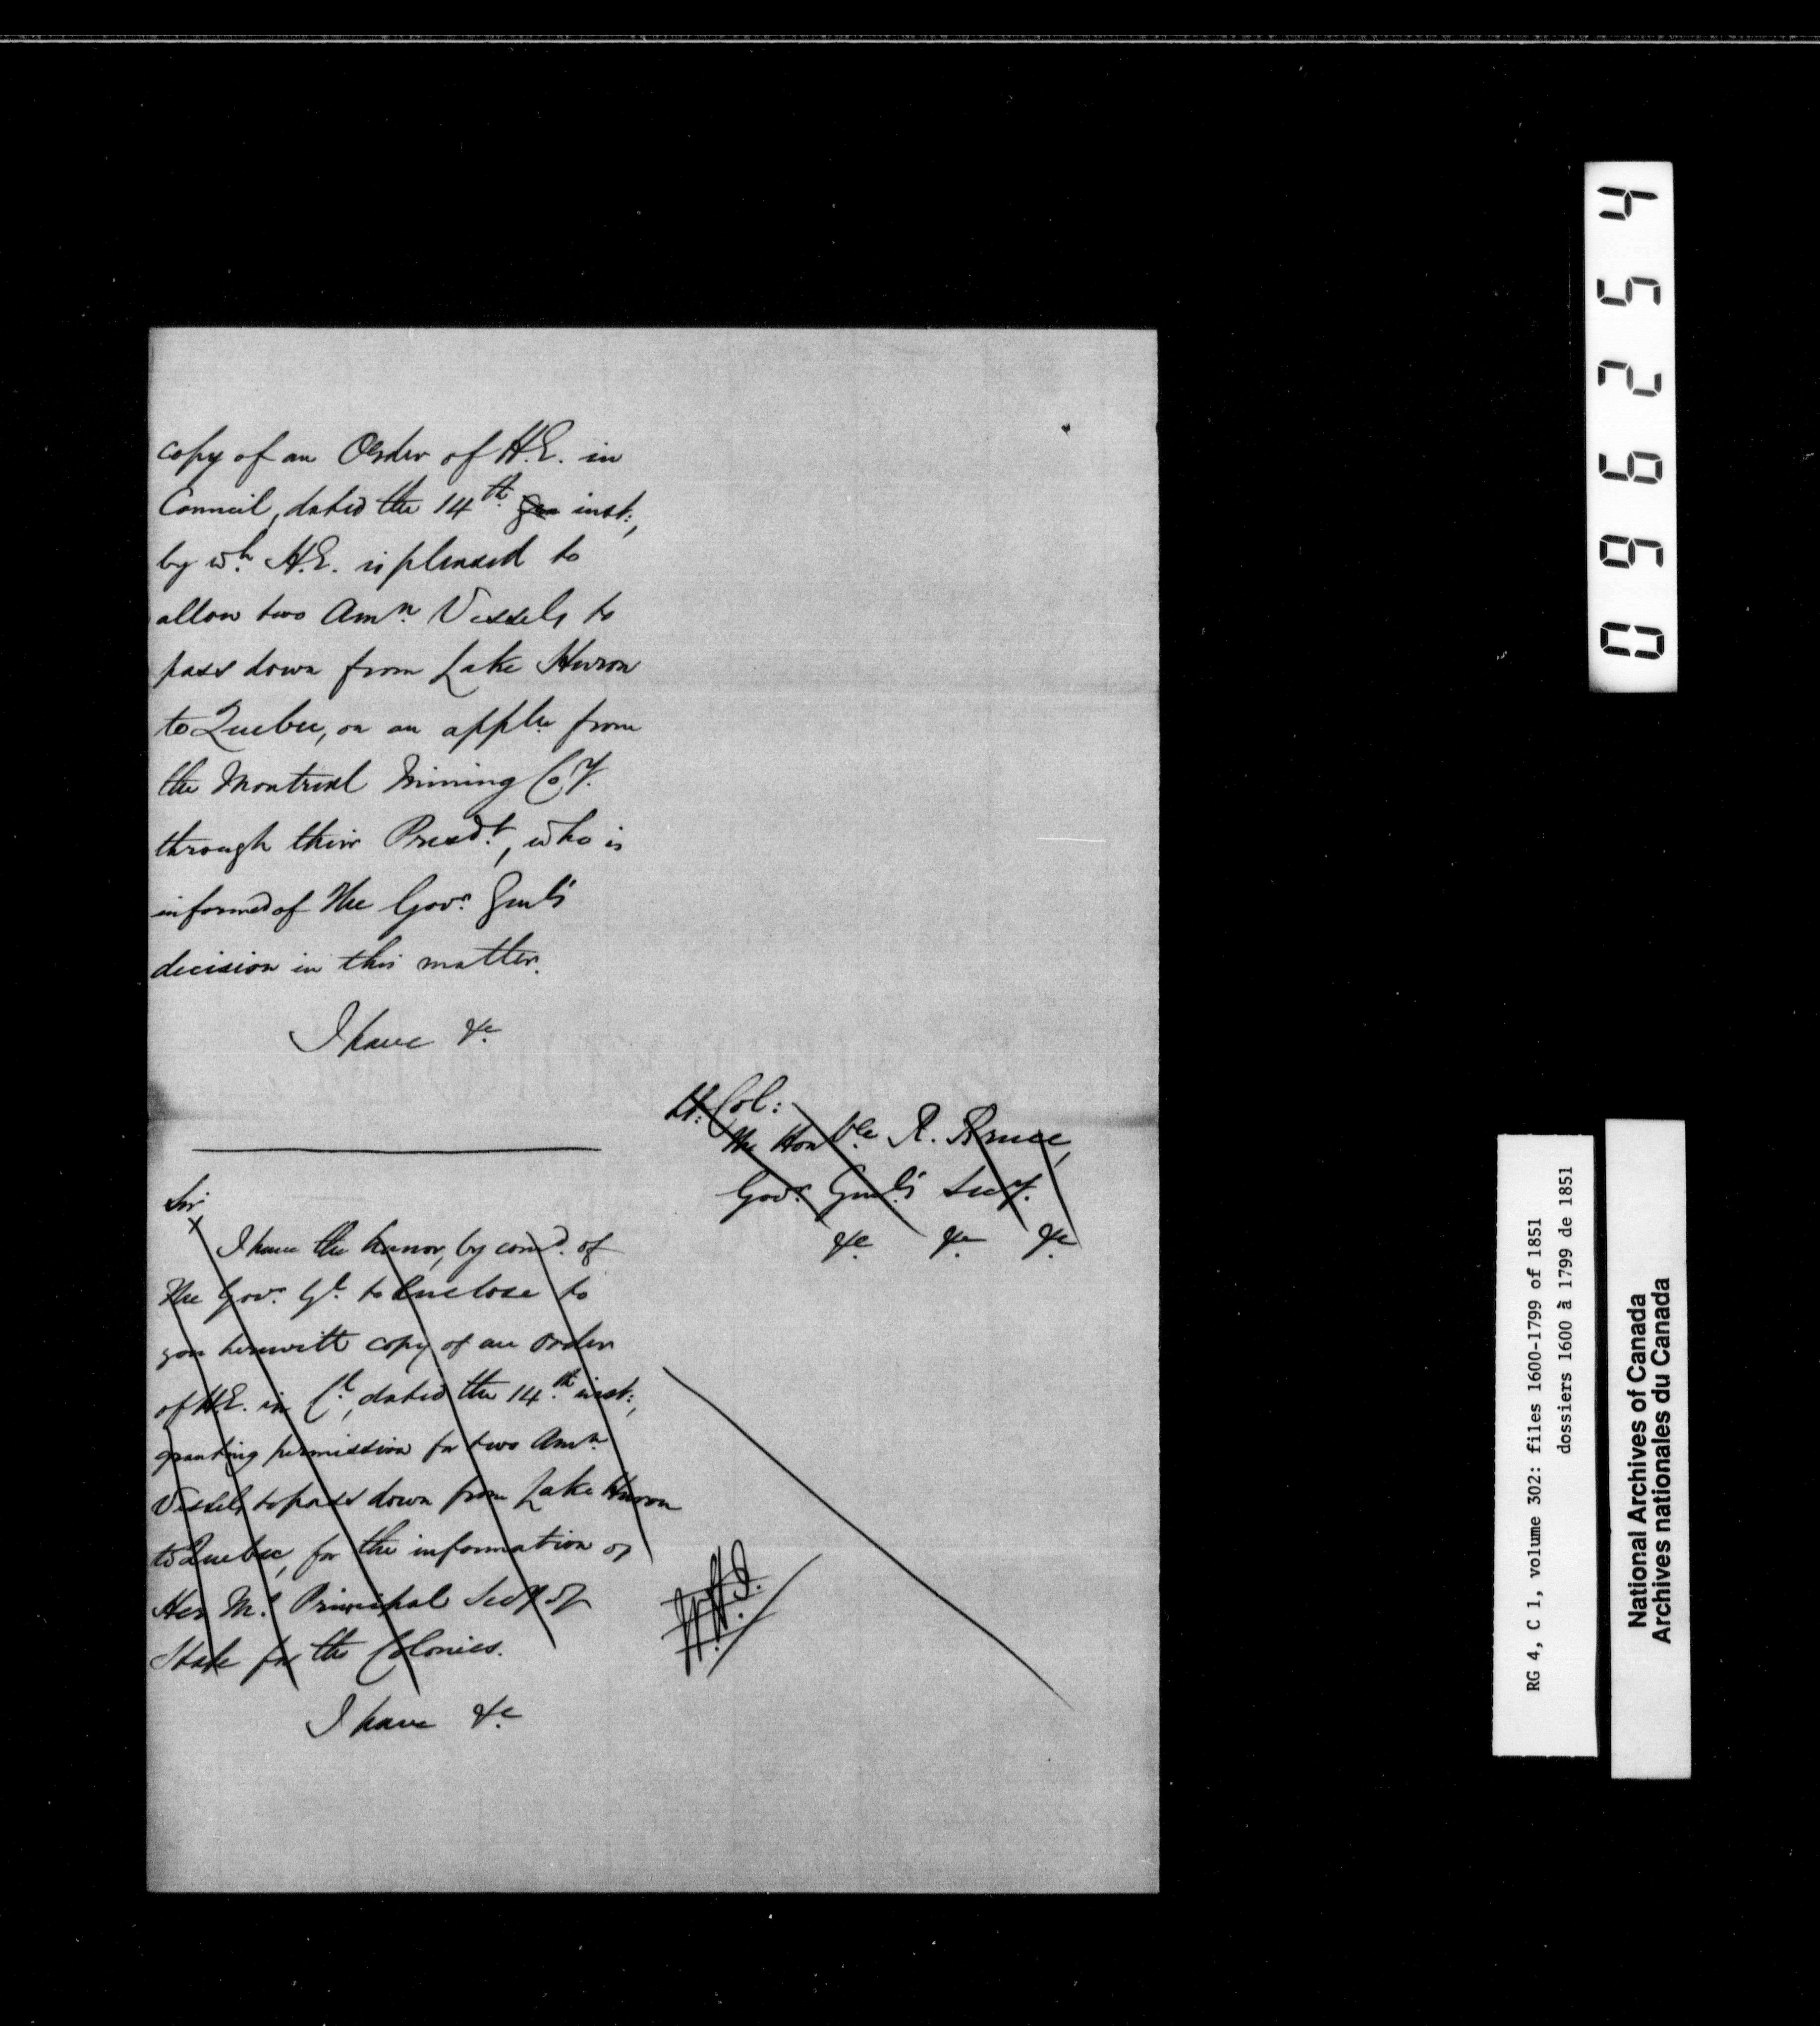 copy of an Order of H.E. in
Council, dated the 14th. inst:,
by wh. H.E. is pleased to
allow two Amn. Vessels to
pass down from Lake Huron
to Quebec, on an appln. from
the Montreal Mining Coy.
through their Presdt., who is
informed of The Govr. Genl's
decision in this matter.
I have &c.
Lt: Col:
The Honble R. Bruce,
Govr. Genl's Secy.
&c &c &c
Sir
I have the honor, by comd. of
The Govr. Gl. to Enclose to
you herewith copy of an Order
of H.E. in Cl., dated the 14th. inst:,
granting permission for two Amn.
Vessels to pass down from Lake Huron
to Quebec, for the information of
Her M's Principal Secy of
State for the Colonies.
I have &c.
096254
RG 4, C 1, volume 302: files 1600-1799 of 1851
dossiers 1600 à 1799 de 1851
National Archives of Canada
Archives nationales du Canada